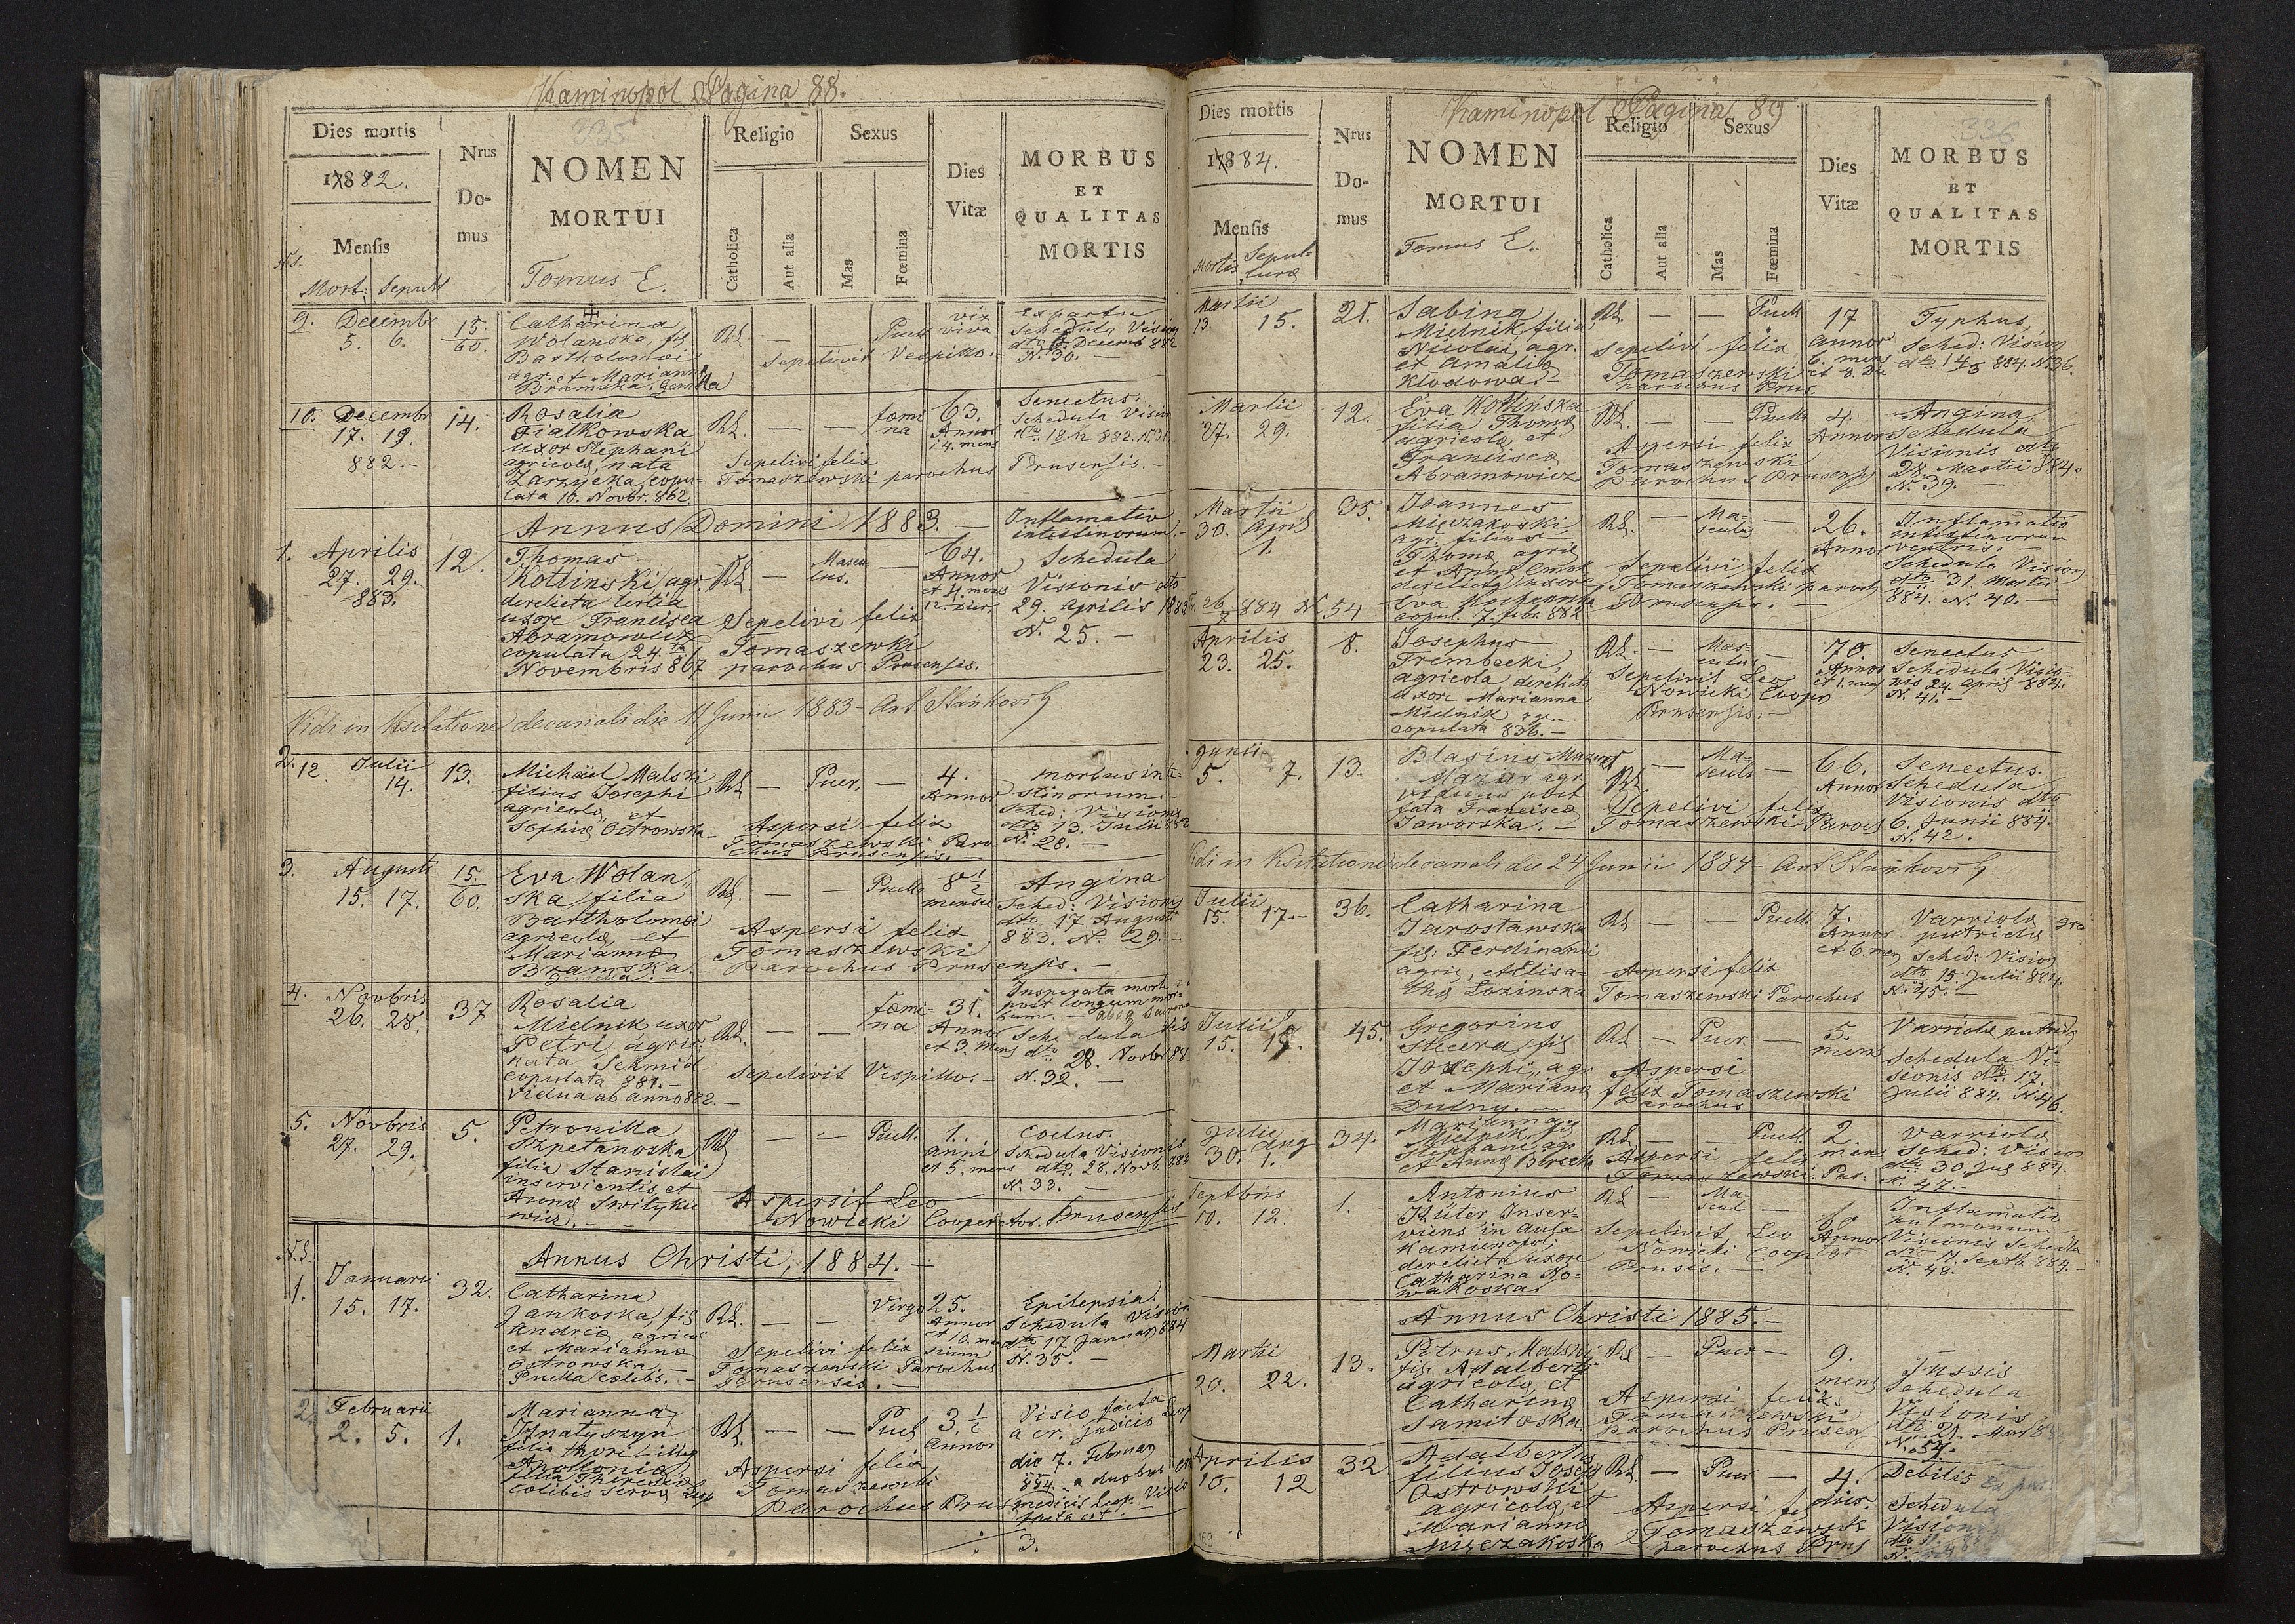 Kaminopol Pagina 88.
335
Dies mortis
1882.
Mensis
Mort: Sepult
Nrus Domus
NOMEN
MORTUI
Tomus E.
Religio
Catholica
Aut alia
Sexus
Mas
Fœmina
Dies Vitæ
MORBUS
ET
QUALITAS
MORTIS
9. Decembr
5. 6.
15.
60.
Catharina
Wolanska, fil
Bartholomæi
agr. et Mariann
Bramska. Gemella
RL. — — Puell
Sepelivit Vespillo.
vix
viva
Ex partu
Schedula Vision
N. 30. —
10. Decembr
17. 19.
882. —
14.
Rosalia
Fiatkowska
uxor Stephani
agricolæ, nata
Zarzycka, copu-
lata 10. Novbr. 862
RL. — — fœmi
na
Sepelivi felix
Tomaszewski parochus Prusensis. —
63.
Annor
Senectus.
Schedula Vision
Annus Domini 1883. —
1. Aprilis
27. 29.
883.
12.
Thomas
Kotlinski, agr.
derelicta tertia
uxore Francisca
Abramowicz
copulata 24.
Novembris 867
RL — Mascu
lus. —
Sepelivi felix
Tomaszewki
parochus Prusensis.
64.
Annor
et 4. mens
12. dier.
Inflamatio
intestinorum. —
Schedula
Visionis dto
29. Aprilis 1883
N. 25. —
Vidi in Visitatione decanali die 11 Junii 1883 — Ant Stankovi
2. Julii
12. 14.
13.
Michäel Malski
filius Josephi
agricolæ, et
Sophiæ Ostrowska —
RL — Puer. —
Aspersi felix
Tomaszewski Paro
chus Prusensis. —
4.
Annor
morbus inte-
stinorum. —
Sched: Visionis
dto 13. Julii 883
N. 28. —
3. Augusti
15. 17.
15.
60.
Eva Wolan-
ska, filia
Bartholomæi
agricolæ, et
Mariannæ
Bramska. —
RL. — — Puella
Aspersi felix
Tomaszewski
Parochus Prusensis. —
8 1/2
mensi
Angina
Sched: Visionis
dto 17. August
883. No 29. —
4. Novbris
26. 28.
37
Rosalia
Mielnik uxor
Petri agric.
nata Schmid
copulata 881. —
Vidua ab anno 882. —
RL. — — fœmi-
na.
Sepelivit Vespillo. —
31.
Annor
et 3. mens
Insperata mort
post longum mor-
bum. —
Schedula Vis
dto 28. Novbr 88
N. 32. —
5. Novbris
27. 29.
5.
Petronilla
Szpetanoska
filia Stanislai
inservientis et
Annæ Swityke
wicz. —
RL — — Puell.
Aspersit Leo
Nowicki Cooperator. Prusensis
1.
anni
et 5. mens
Schedula Visionis
dto. 28. Novb. 883
N. 33. —
N.S.
Annus Christi, 1884. —
1. Januarii
15. 17.
32.
Catharina
Jankoska, fil
Andreæ, agricol
et Marianna
Ostrowska. —
Puella cœlebs. —
RL. — — Virgo
Sepelivi felix
Tomaszewski Parochus
Prusensis. —
25.
Annor
et 10. men
sium
Epilepsia.
Schedula Vision
dto 17. Januar 884
N. 35. —
2. Februarii
2. 5.
1.
Marianna,
Ihnatyszyn
Apolonia
filia Theresiæ
cœlibis servæ
RL. — — Puel
Aspersi felix
Tomaszewski
Parochus Prus
3 1/2
annor
Visio facta
a cr. judicio Leop
die 7. Februar
884. a duobus
medicis Leop. Visio
facta est. —
3.
Kaminopol Pagina 89
336
Dies mortis
1884.
Mensis
Mortis Sepulturæ
Nrus Domus
NOMEN
MORTUI
Tomus E.
Religio
Catholica
Aut alia
Sexus
Mas
Fœmina
Dies Vitæ
MORBUS
ET
QUALITAS
MORTIS
Martii
13. 15.
21.
Sabina
Mielnik, filia
Nicolai, agr.
et Amaliæ
Klodowa. —
RL. — — Puell
Sepelivi felix
Tomaszewski
parochus Prus.
17
annor
6. mens
et 8. die
Typhus,
Sched: Vision
dto 14/3 884. N. 36.
Martii
27. 29.
12.
Eva Kotlińska
filia Thomæ
agricolæ, et
Francisca
Abramowicz
RL. — — Puella
Aspersi felix
Tomaszewski
Parochus Prusensis
4.
Annor
Angina,
Schedula
Visionis dto
28. Martii 884.
N. 39. —
Martii
30. April
1.
35.
Joannes
Mięczakoski,
agr. filius
Thomæ agric
derelicta uxore
copul. 7. febr. 882
RL. — Ma-
sculus —
Sepelivi felix
Tomaszewski paroch
Prusensis. —
26.
Annor
Inflamatio
intestinorum
ventris. —
Schedula Vision
dto 31. Martii
884. N. 40. —
26/7 884 N. 54
Aprilis
23. 25.
8.
Josephus
Trembecki,
agricola derelict
uxore Marianna
Mielnik
copulata 836. —
RL. — Mas-
culus —
Sepelivit Leo
Nowicki Coopr
Prusensis. —
70.
Annor
et 1. men
Senectus
Schedula Visio-
nis 24. April 884.
N. 41. —
Junii
5. 7.
13.
Blasius Mazur
Mazur agr.
viduus post
fata Franciscæ
Jaworska. —
RL — Ma-
scul —
Sepelivi felix
Tomaszewski Paroch
66.
Annor
Senectus.
Schedula
Visionis dto
6. Junii 884.
N. 42.
Vidi in Visitatione decanali die 24 Junii 1884 — Ant Stankovi
Julii
15. 17. —
36.
Catharina
Jarosławska
fil: Ferdinandi
agric, et Elisa-
thæ Lozinska
RL — — Puell.
Aspersi felix
Tomaszewski Parochus
7.
Annor
et 6. men
Varriola
putrida
Sched: Vision
dto 15. Julii 884.
N. 45. —
Julii
15.
45.
Gregorius
Steera, fil
Josephi, agr
et Mariana
Dulny. —
RL — Puer. —
Aspersi
felix Tomaszewski
Parochus
5.
mens
Variola putrida
Schedula Vi-
sionis dto 17.
Julii 884. N. 46.
Julii Aug
30. 1.
34.
Marianna
Mielnik, fil
Stephani agr
RL — — Puell.
Aspersi felix
Tomaszewski. Par.
2
mens
Varriola
Sched: Vision
dto 30 Jul 884.
N. 47. —
Septbris
10. 12.
1.
Antonius
Küter Inser-
viens in aula
Kamienopoli
derelicta uxore
Catharina No-
wakoska
RL — Ma-
scul —
Sepelivit Leo
Nowicki Cooptor
Prusis. —
Annor
Inflamatio
pulmonum
Visionis Schedla
dto 11. Septb 884. —
N. 48.
Annus Christi 1885. —
Martii
20. 22.
13.
Petrus Malski
fil. Adalberti
agricolæ, et
Catharinæ
Samitoska
RL — Puer —
Aspersi felix
Tomaszewski
parochus Prusen
9.
mens
Tussis
Schedula
Visionis
dto. 21. Mart 88
Aprilis
10. 12
32
Adalbertus
filius Josephi
Ostrowski
agricolæ, et
Marianna
Mięczakoska
RL — Puer —
Aspersi fel
Tomaszewsk
parochus Prus
4.
dier.
Debilis
Schedula
Visionis
169